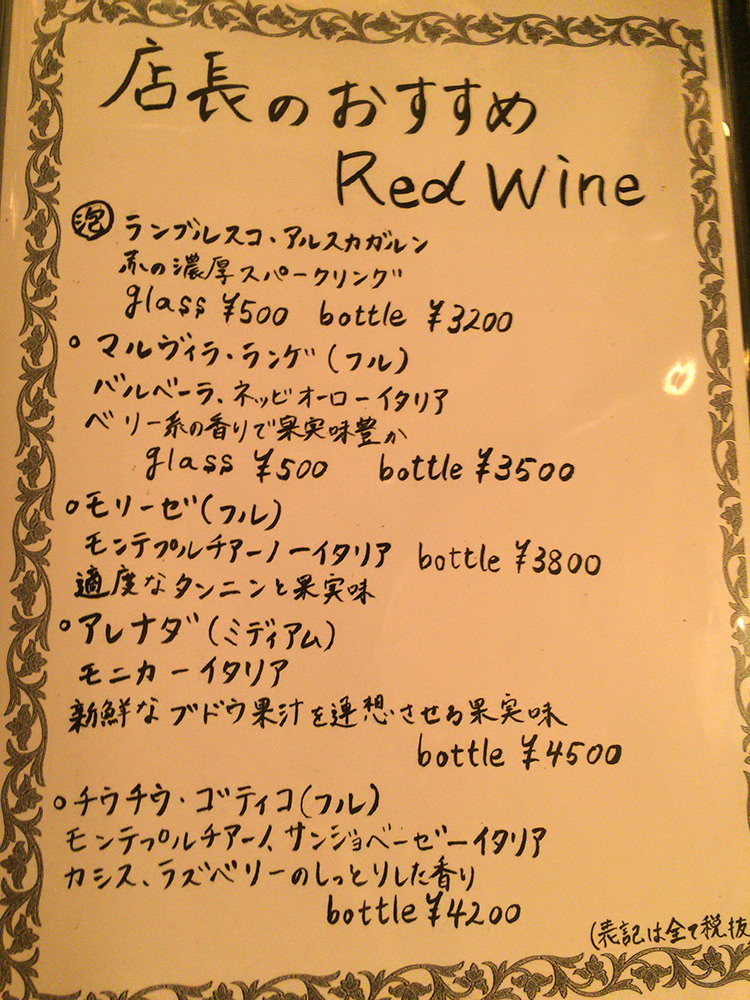 店長のおすすめ
Red Wine
泡 ランブルスコ・アルスカガルン
赤の濃厚スパークリング
glass ¥500 bottle ¥3200
○マルヴィラ・ランゲ(フル)
バルベーラ、ネッビオーローイタリア
ベリー系の香りで果実味豊か
glass ¥500 bottle ¥3500
○モリーゼ(フル)
モンテプルチアーノーイタリア bottle ¥3800
適度なタンニンと果実味
○アレナダ(ミディアム)
モニカーイタリア
新鮮なブドウ果汁を連想させる果実味
bottle ¥4500
○チウチウ・ゴティコ(フル)
モンテプルチアーノ、サンジョベーゼーイタリア
カシス、ラズベリーのしっとりした香り
bottle ¥4200
(表記は全て税抜